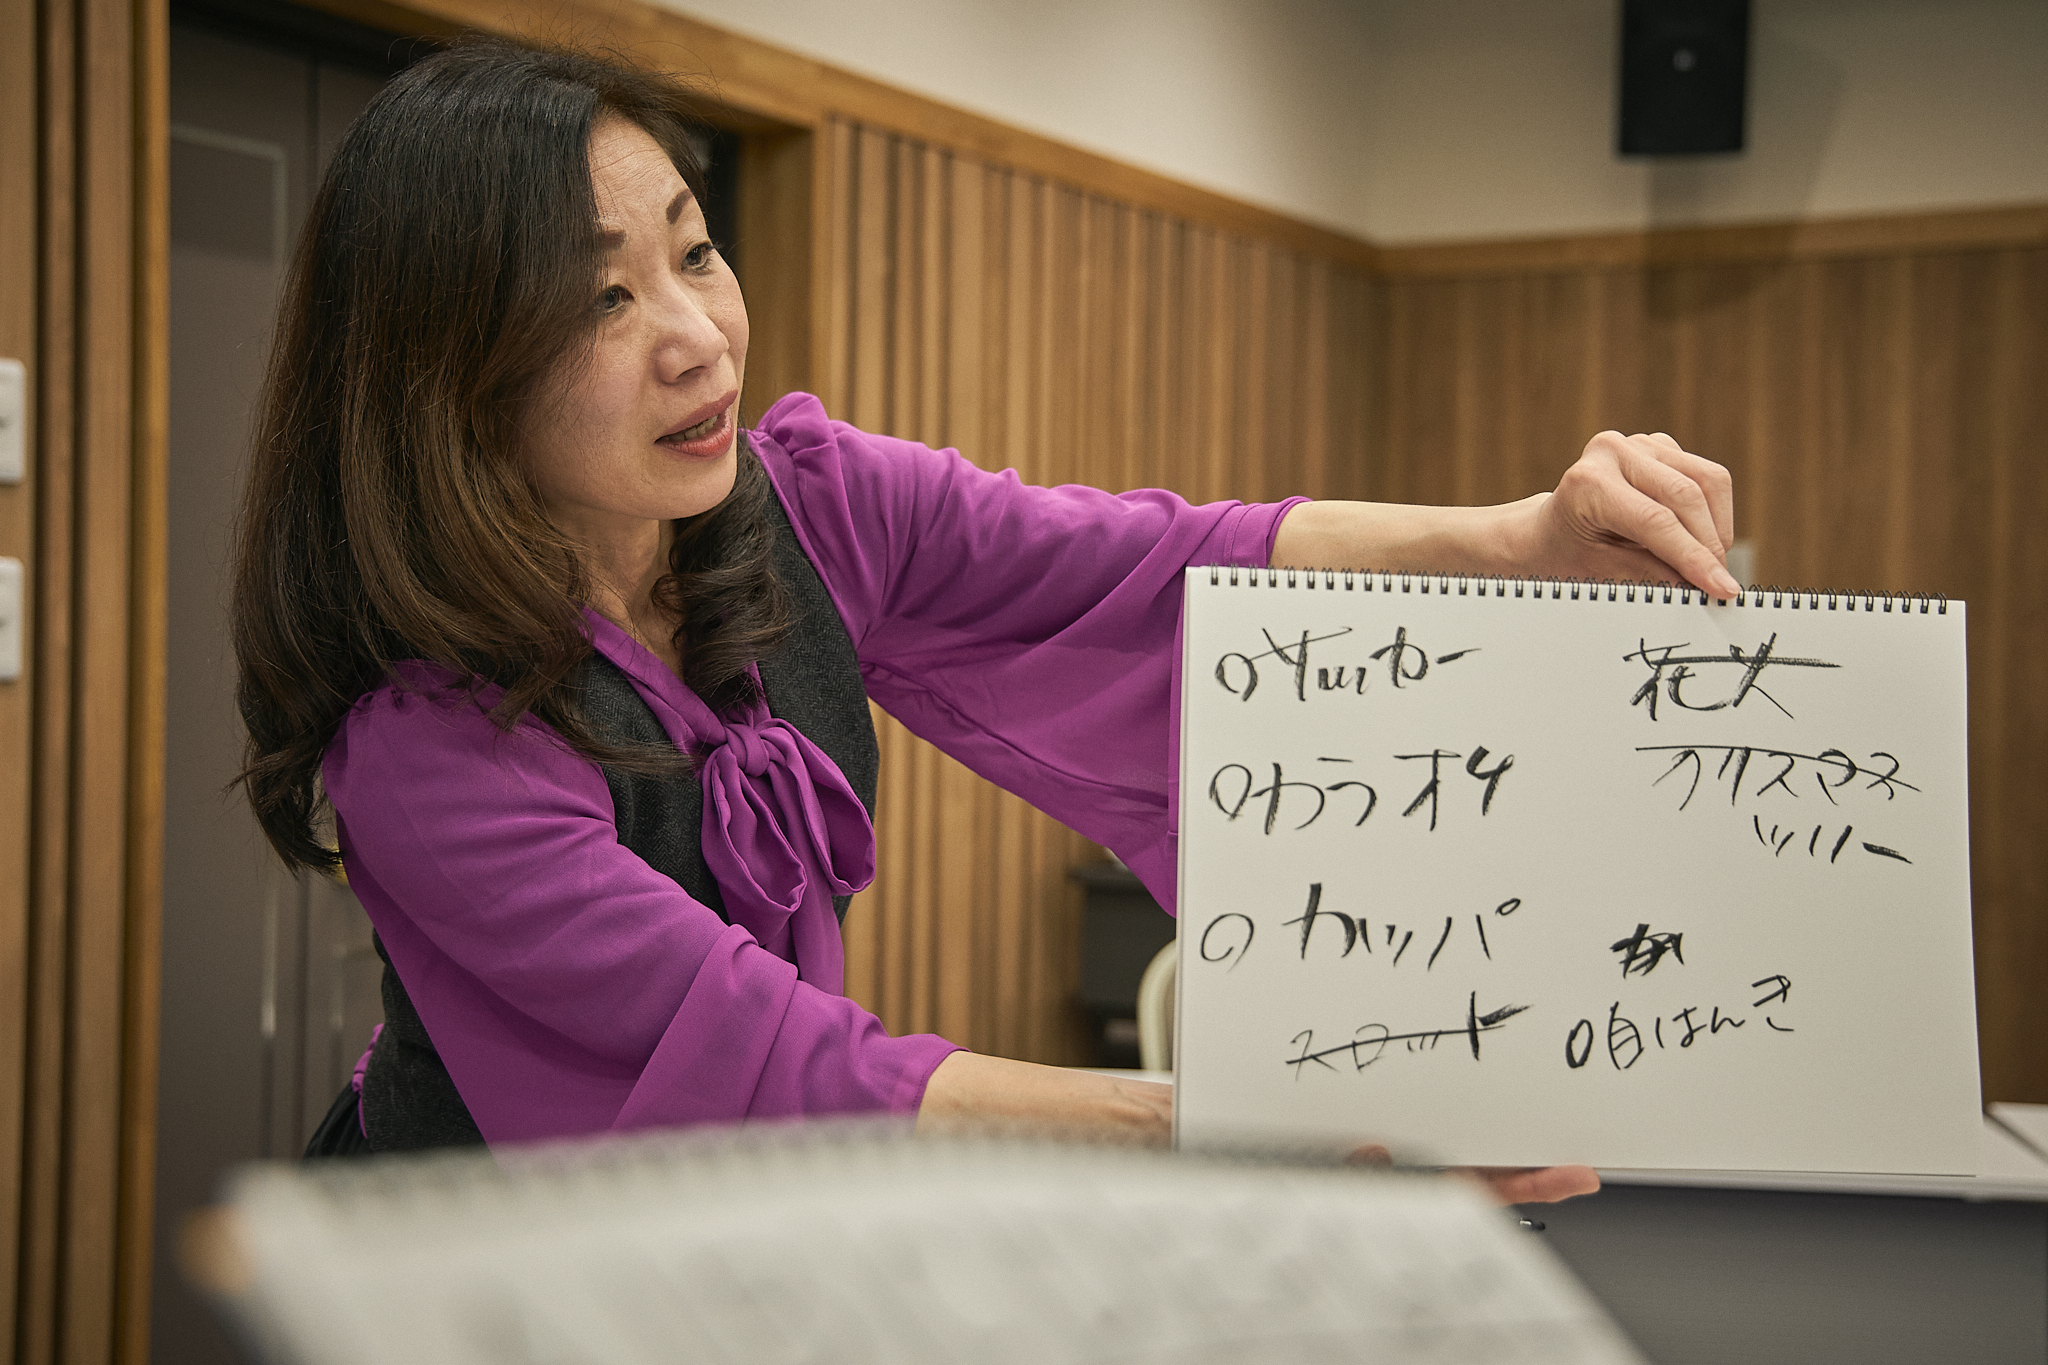 ○サッカー
○カラオケ
○カッパ
スロット
花火
クリスマス
ツリー
か
○自はんき